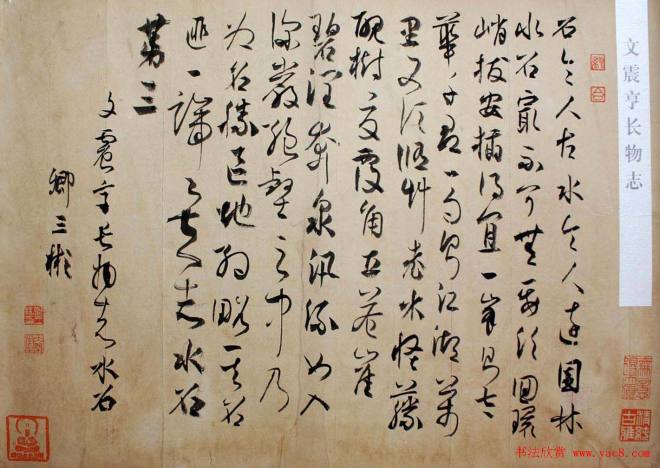 石令人古水令人远园林
水石最不可无要须回环
峭拔安插得宜一峰则太
华千寻一勺则江湖万
里又须修竹老木怪藤
醜树交覆角立苍崖
碧涧奔泉汛流如入
深岩绝壑之中乃
为名胜区地约略其名
匪一端
志水石
第三
文震亨长物志水石
卿三彬
文震亨长物志
书法欣赏 www.yac8.com